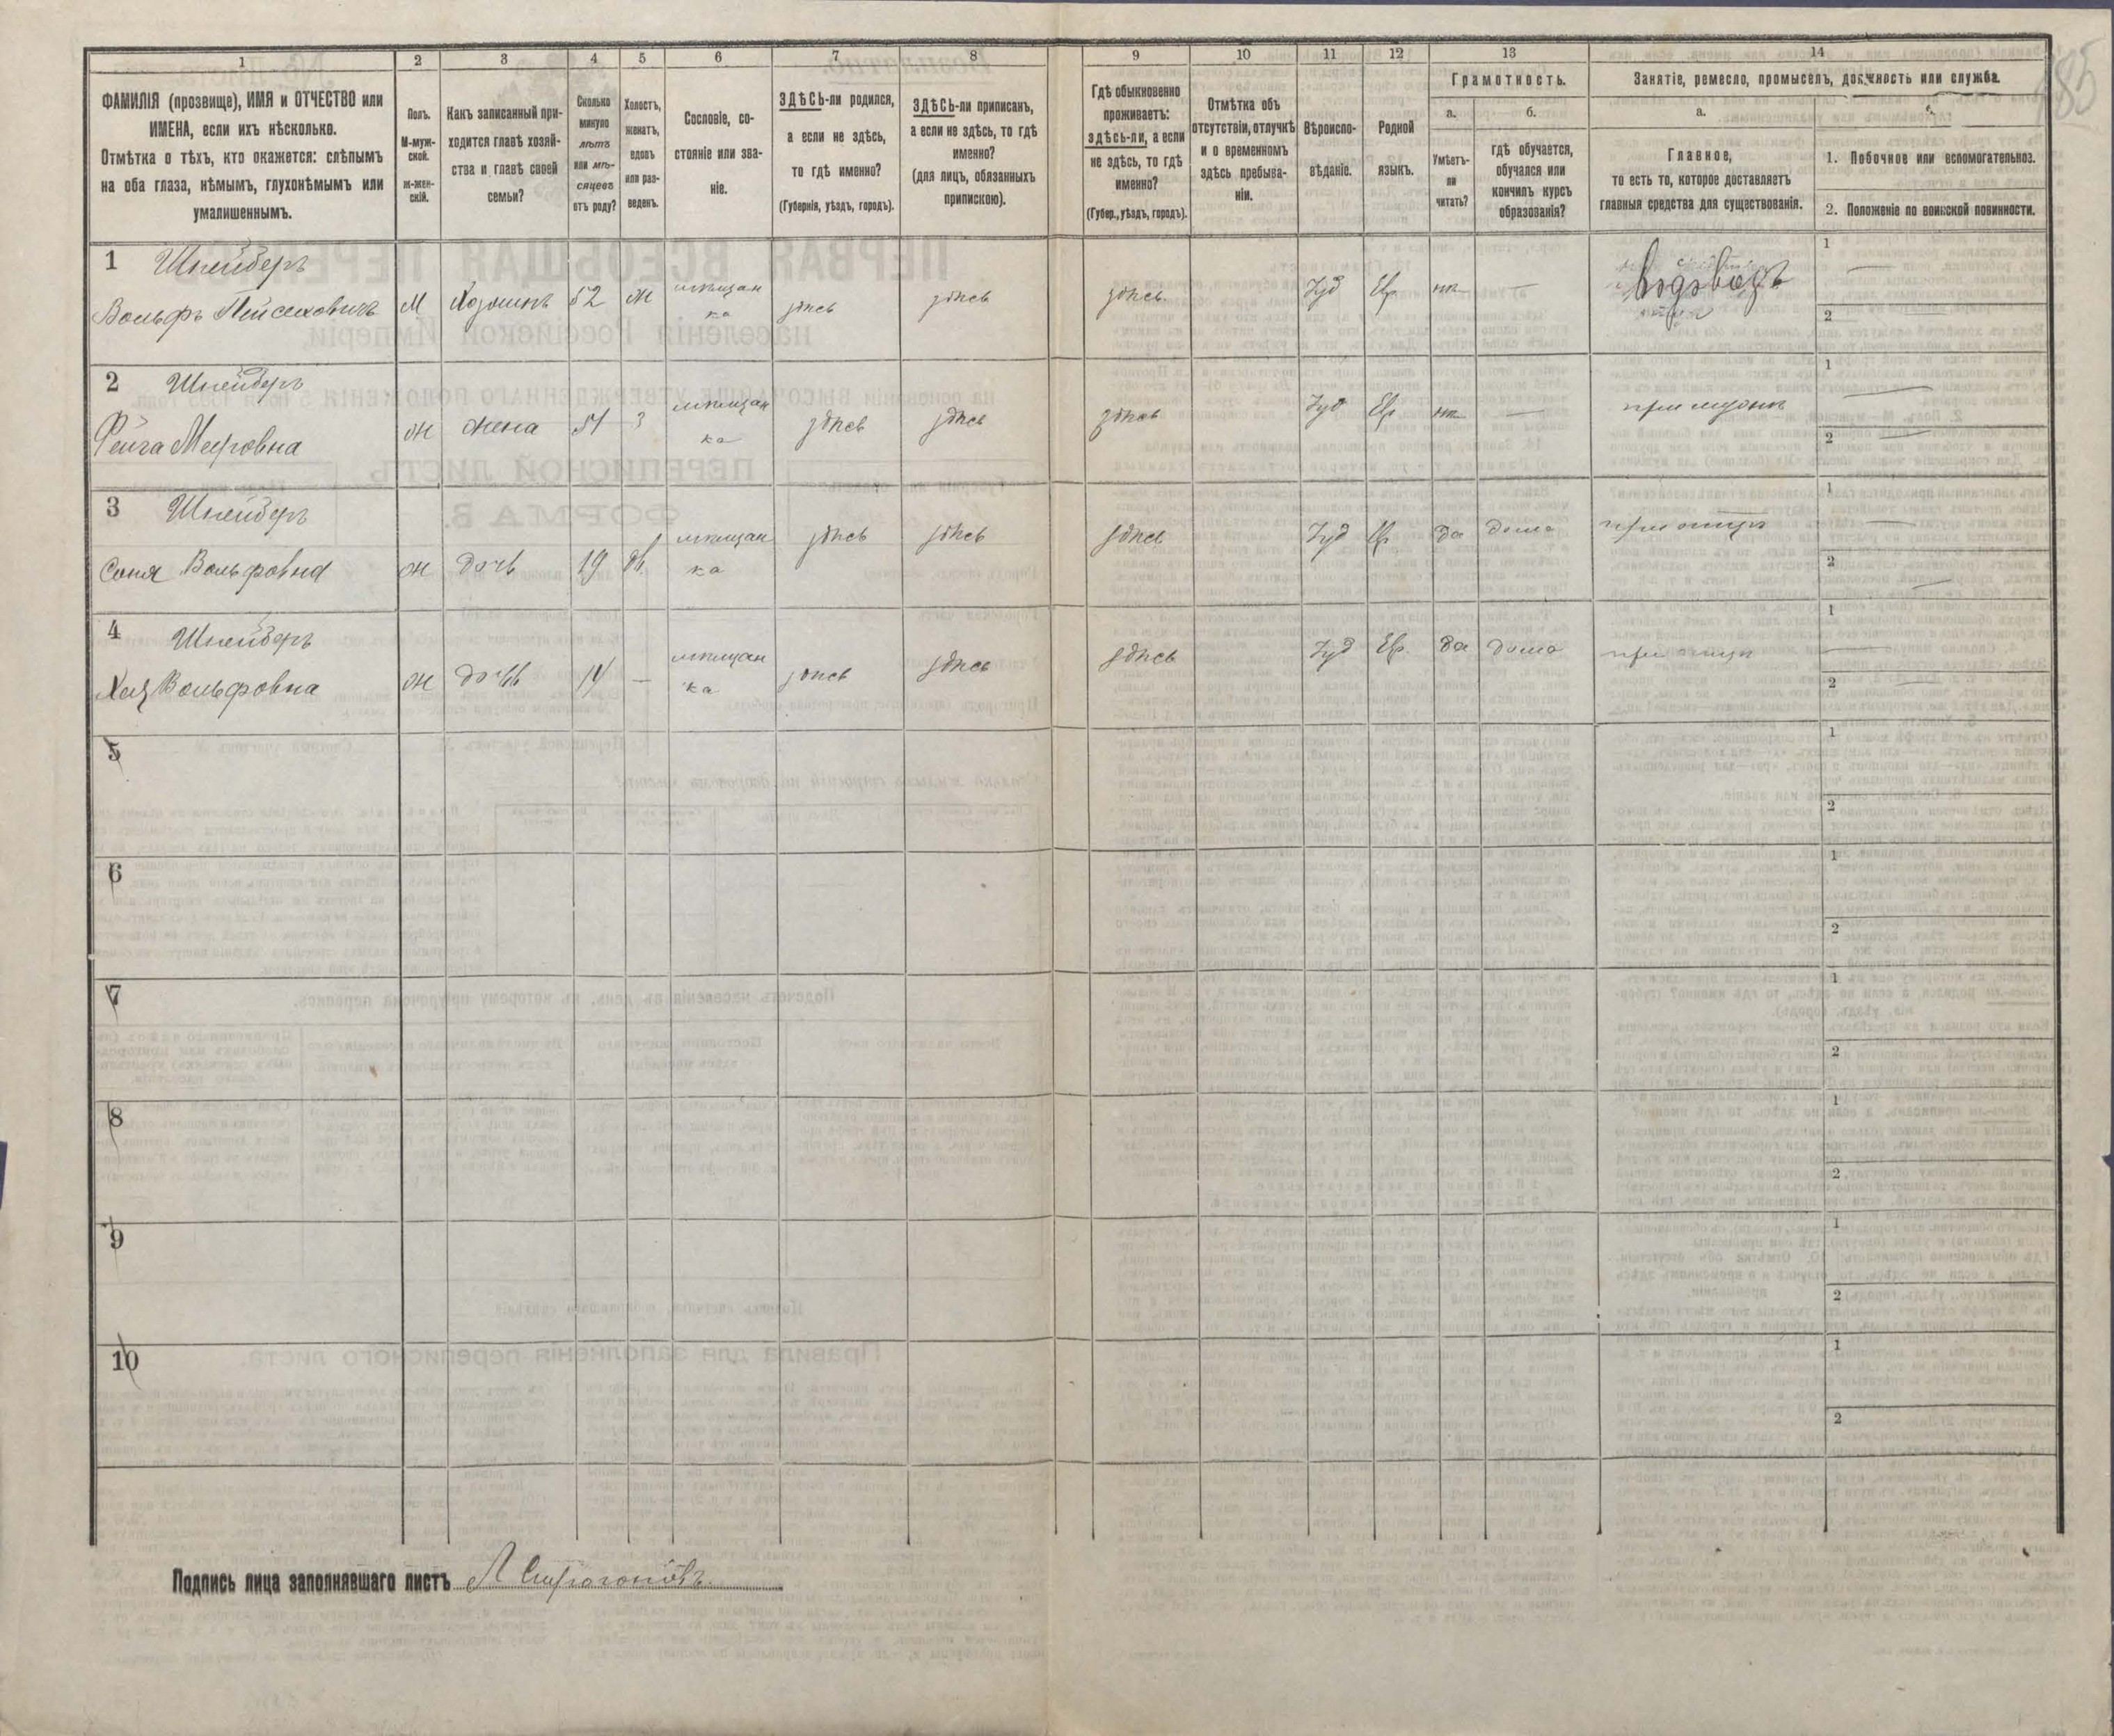 1
2
3
4
5
6
7
8
9
10
11
12
13
14
185
ФАМИЛІЯ (прозвище), ИМЯ и ОТЧЕСТВО или
ИМЕНА, если ихъ нѣсколько.
Отмѣтка о тѣхъ, кто окажется: слѣпымъ
на оба глаза, нѣмымъ, глухонѣмымъ или
умалишеннымъ.
Полъ.
М-муж-
ской.
Ж-жен-
скій.
Какъ записанный при-
ходится главѣ хозяй-
ства и главѣ своей
семьи?
Сколько
минуло
лѣтъ
или мѣ-
сяцевъ
отъ роду?
Холостъ,
женатъ,
вдовъ
или раз-
веденъ.
Сословіе, со-
стояніе или зва-
ніе.
ЗДѢСЬ-ли родился,
а если не здѣсь,
то гдѣ именно?
(Губернія, уѣздъ, городъ).
ЗДѢСЬ-ли приписанъ,
а если не здѣсь, то гдѣ
именно?
(для лицъ, обязанныхъ
припискою).
Гдѣ обыкновенно
проживаетъ:
здѣсь-ли, а если
не здѣсь, то гдѣ
именно?
(Губер., уѣздъ, городъ).
Отмѣтка объ
отсутствіи, отлучкѣ
и о временномъ
здѣсь пребыва-
ніи.
Вѣроиспо-
вѣданіе.
Родной
языкъ.
Грамотность.
а.
Умѣетъ-
ли
читать?
б.
гдѣ обучается,
обучался или
кончилъ курсъ
образованія?
Занятіе, ремесло, промыселъ, должность или служба.
а.
Главное,
то есть то, которое доставляетъ
главныя средства для существованія.
б.
1. Побочное или вспомогательное.
2. Положеніе по воинской повинности.
1 Шнейдеръ
Вольфъ Пейсаховичъ М Хозяинъ 52 ж мѣщан здѣсь здѣсь здѣсь Іуд Евр нѣ — Водовозъ 1 —
ка
2
2 Шнейдеръ
Фейга Меӥровна ж жена 51 З мѣщан здѣсь здѣсь здѣсь Іуд Евр нѣ — при мужѣ 1 —
ка
2 —
3 Шнейдеръ
Соня Вольфовна ж дочь 19 дѣ мѣщан здѣсь здѣсь здѣсь Іуд Евр да дома при отцѣ 1 —
ка
2 —
4 Шнейдеръ
Хая Вольфовна ж дочь 14 — мѣщан здѣсь здѣсь здѣсь Іуд Евр. да дома при отцѣ 1 —
ка
2 —
5 1
2
6 1
2
7 1
2
8 1
2
9 1
2
10 1
2
Подпись лица заполнявшаго листъ